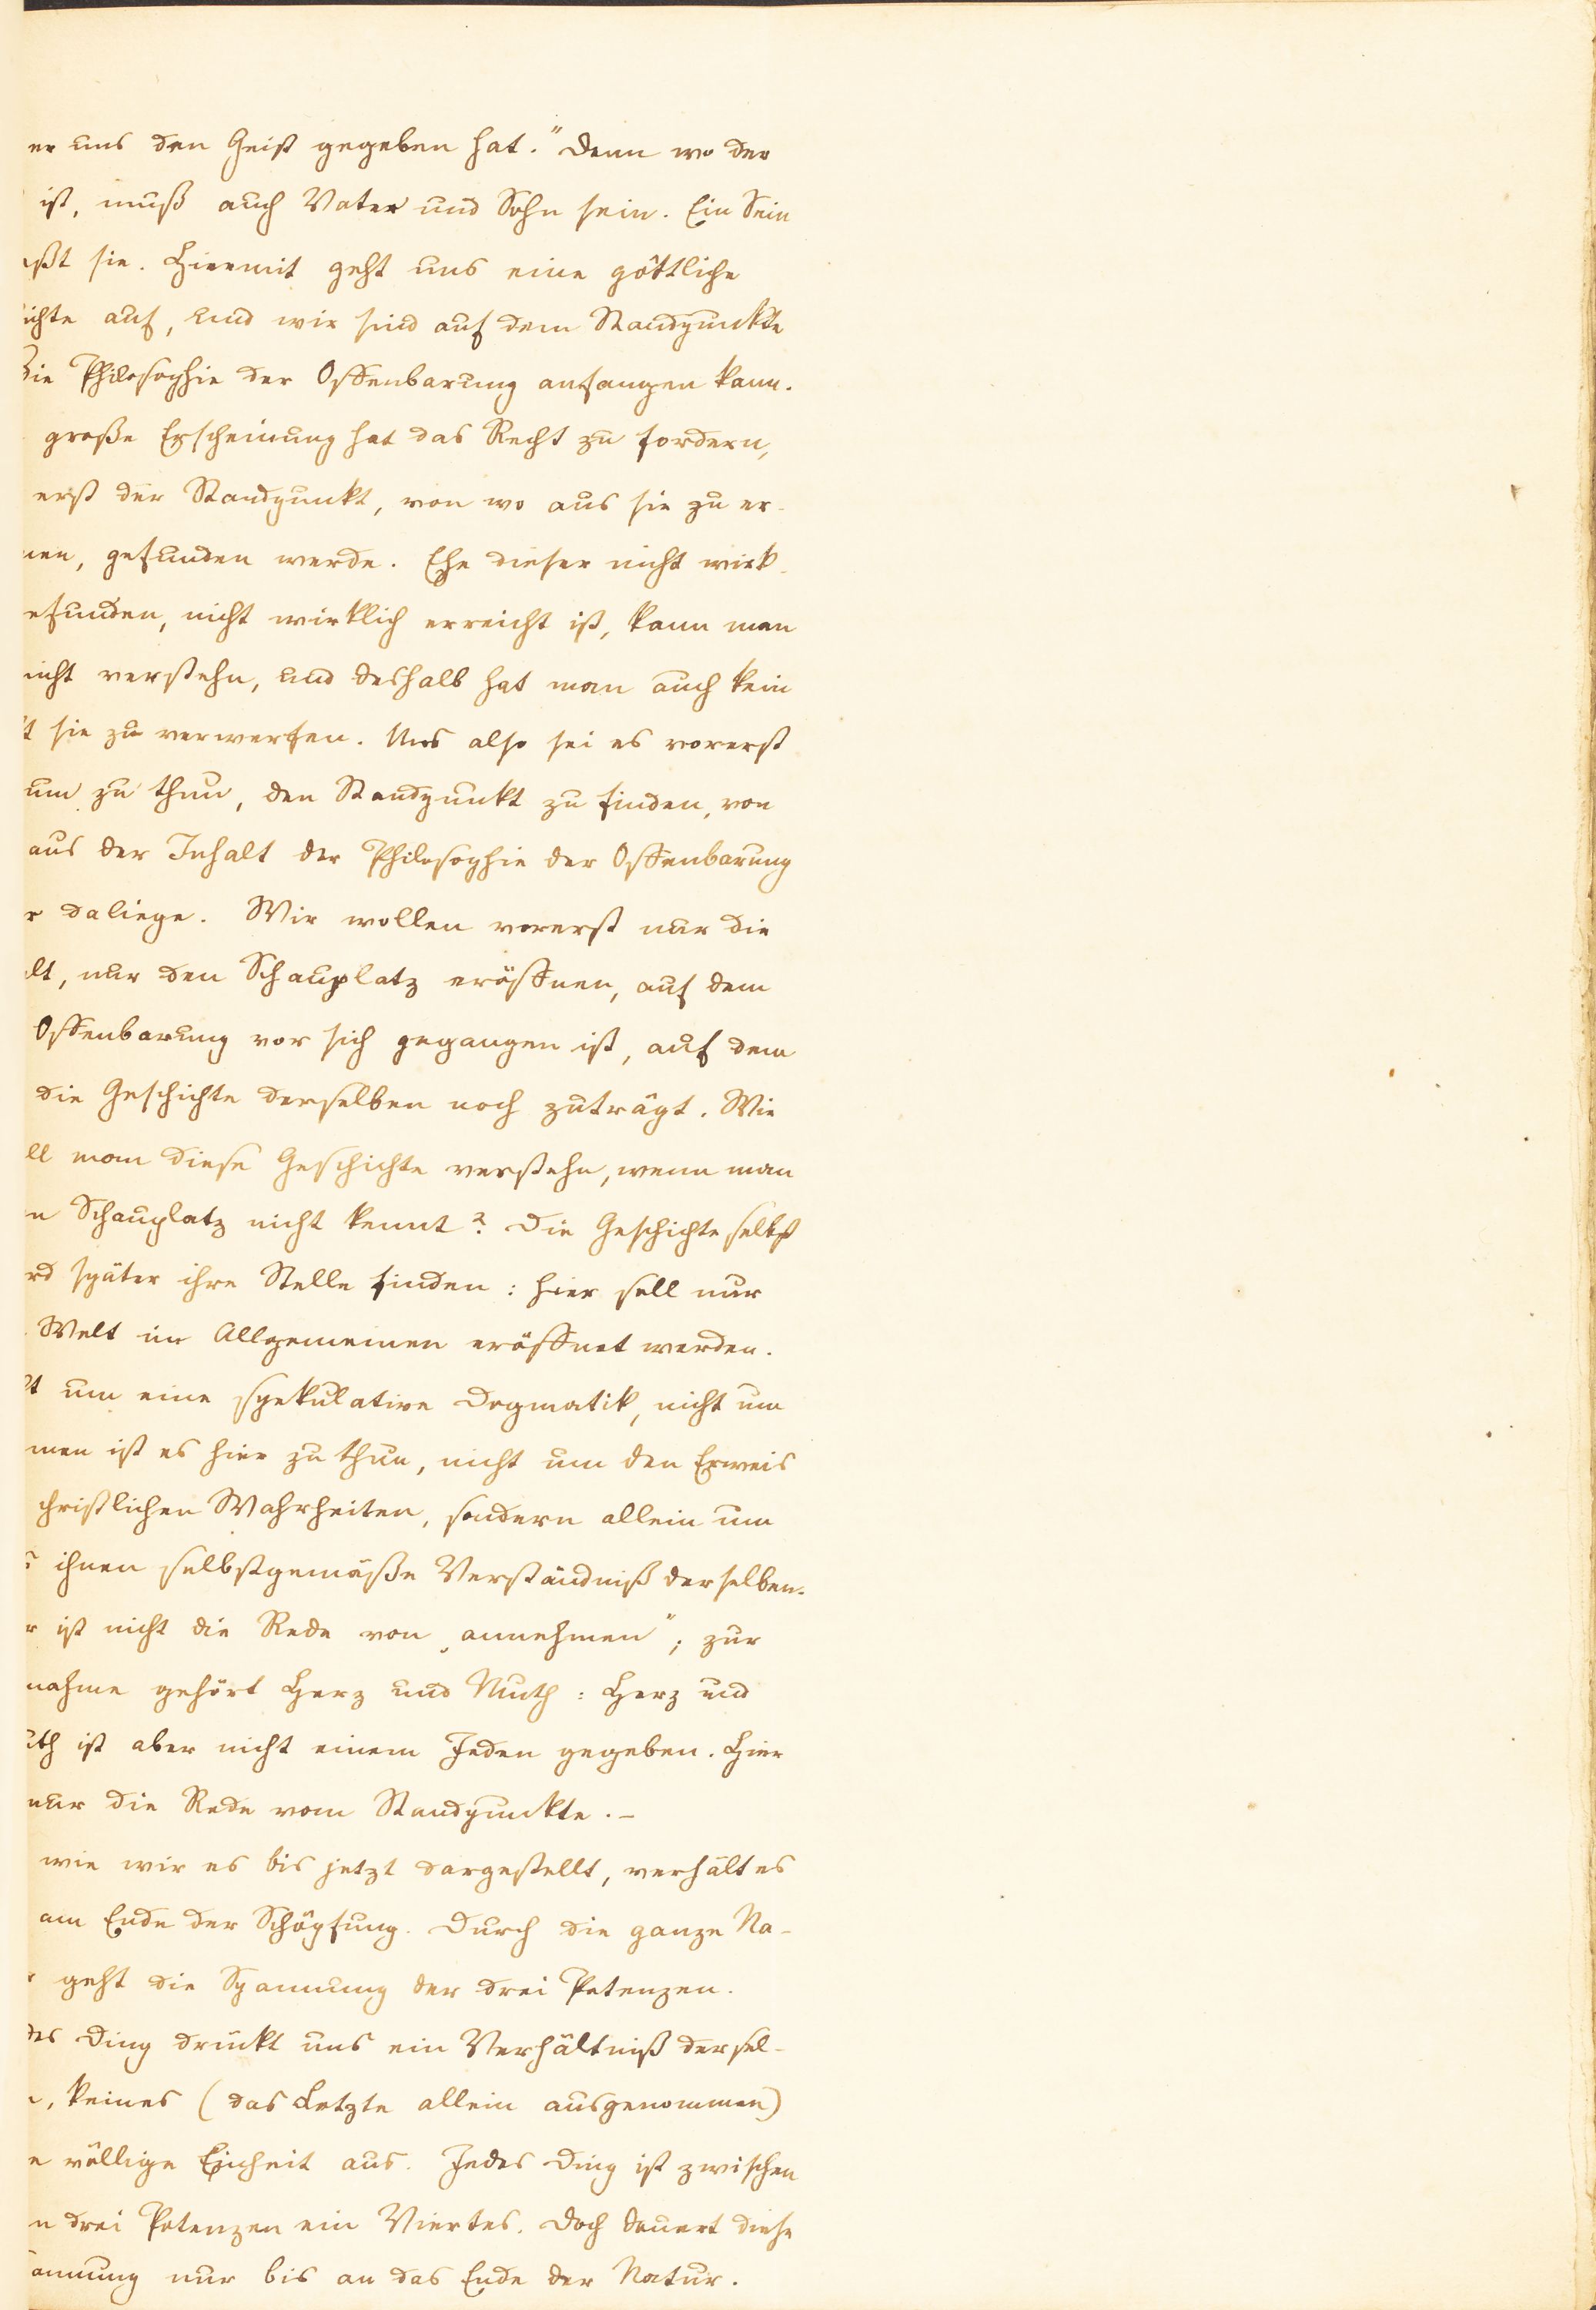 er uns den Geist gegeben hat." Denn wo der
ist, muß auch Vater und Sohn sein. Ein Sein
ßt sie. Hiermit geht uns eine göttliche
ichte auf, und wir sind auf dem Standpunkte
die Philosophie der Offenbarung anfangen kann.
große Erscheinung hat das Recht zu fordern,
erst der Standpunkt, von wo aus sie zu er-
nen, gefunden werde. Ehe dieser nicht wirk-
efunden, nicht wirklich erreicht ist, kann man
icht verstehn, und deshalb hat man auch kein
t sie zu verwerfen. Uns also sei es vorerst
um zu thun, den Standpunkt zu finden, von
aus der Inhalt der Philosophie der Offenbarung
r daliege. Wir wollen vorerst nur die
lt, nur den Schauplatz eröffnen, auf dem
Offenbarung vor sich gegangen ist, auf dem
die Geschichte derselben noch zuträgt. Wie
ll man diese Geschichte verstehn, wenn man
n Schauplatz nicht kennt? Die Geschichte selbst
rd später ihre Stelle finden: hier soll nur
Welt im Allgemeinen eröffnet werden.
t um eine spekulative Dogmatik, nicht um
men ist es hier zu thun, nicht um den Erweis
christlichen Wahrheiten, sondern allein um
s ihnen selbstgemäße Verständniß derselben.
r ist nicht die Rede von „annehmen"; zur
nahme gehört Herz und Muth: Herz und
uth ist aber nicht einem Jeden gegeben. Hier
nur die Rede vom Standpunkte. –
wie wir es bis jetzt dargestellt, verhält es
am Ende der Schöpfung. Durch die ganze Na-
r geht die Spannung der drei Potenzen.
des Ding drückt uns ein Verhältniß dersel-
n, keines (das Letzte allein ausgenommen)
e völlige Einheit aus. Jedes Ding ist zwischen
n drei Potenzen ein Viertes. Doch dauert diese
annung nur bis an das Ende der Natur.